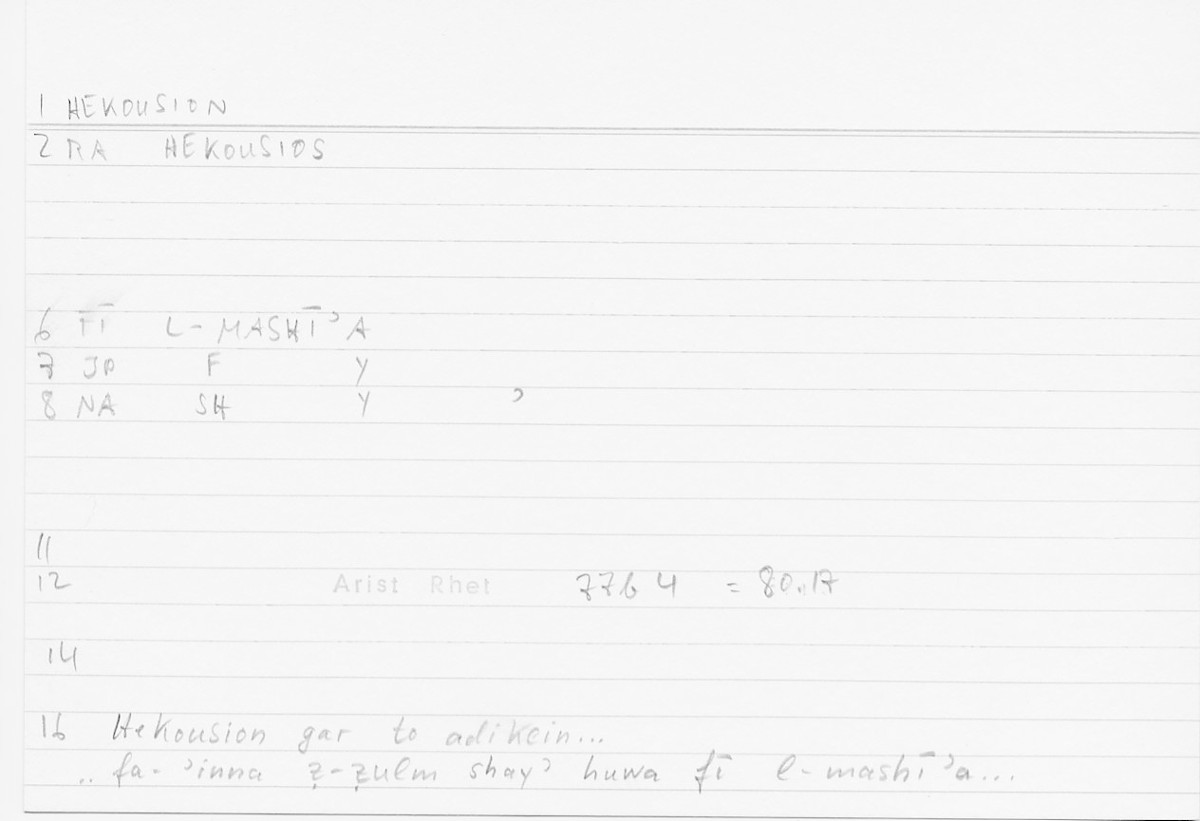 1 HEKOUSION
2 RA HEKOUSIOS
6 FĪ L-MASHĪʾA
7 JP F Y
8 NA SH Y ʾ
11
12 Arist Rhet 77b 4 = 80.17
14
16 Hekousion gar to adikein...
.. fa-ʾinna ẓ-ẓulm shayʾ huwa fī l-mashīʾa...